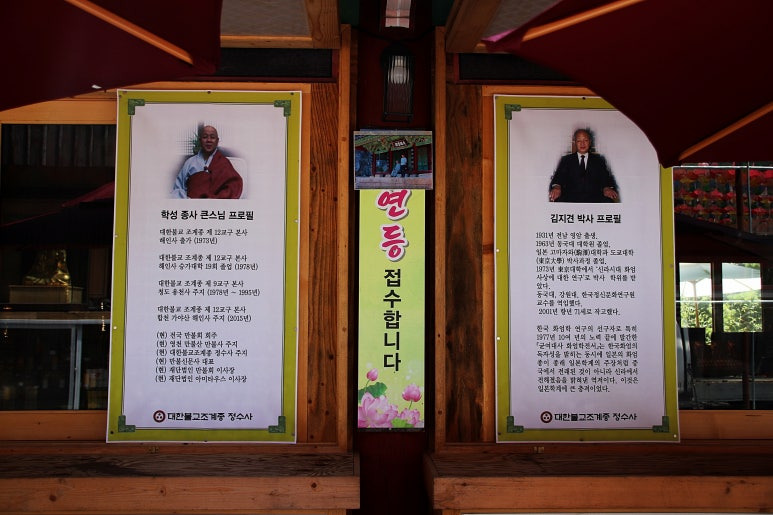 학성 종사 큰스님 프로필
대한불교 조계종 제 12교구 본사
해인사 출가 (1973년)
대한불교 조계종 제 12교구 본사
해인사 승가대학 19회 졸업 (1978년)
대한불교 조계종 제 9교구 본사
청도 용천사 주지 (1978년 ~ 1995년)
대한불교 조계종 제 12교구 본사
합천 가야산 해인사 주지 (2015년)
(현) 전국 만불회 회주
(현) 영천 만불산 만불사 주지
(현) 대한불교조계종 정수사 주지
(현) 만불신문사 대표
(현) 재단법인 만불회 이사장
(현) 재단법인 아미타우스 이사장
대한불교조계종 정수사
연등
접수합니다
김지견 박사 프로필
1931년 전남 영암 출생.
1963년 동국대 대학원 졸업,
일본 고마자와(駒澤)대학과 도쿄대학
(東京大學) 박사과정 졸업,
1973년 東京대학에서 '신라시대 화엄
사상에 대한 연구'로 박사 학위를 받
았다.
동국대, 강원대, 한국정신문화연구원
교수를 역임했다.
2001년 향년 71세로 작고했다.
한국 화엄학 연구의 선구자로 특히
1977년 10여 년의 노력 끝에 발간한
『균여대사 화엄학전서』는 한국화엄의
독자성을 밝히는 동시에 일본의 화엄
종이 종래 일본학계의 주장처럼 중
국에서 전래된 것이 아니라 신라에서
전해졌음을 밝혀낸 역저이다. 이것은
일본학계에 큰 충격이었다.
대한불교조계종 정수사